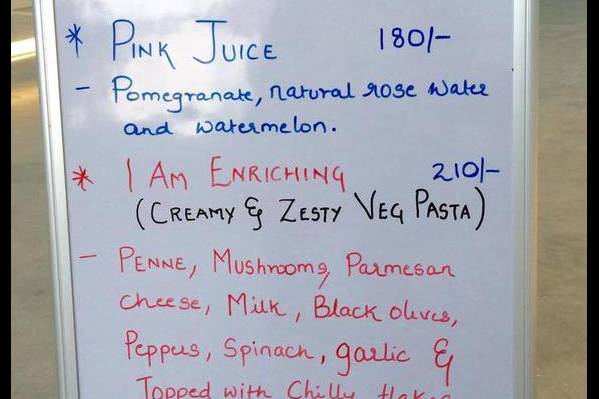 * PINK JUICE 180/-
- Pomegranate, natural rose water
and watermelon.
* I AM ENRICHING 210/-
(CREAMY & ZESTY VEG PASTA)
- PENNE, Mushrooms, Parmesan
cheese, Milk, Black olives,
Peppers, Spinach, garlic &
Topped with Chilly flakes